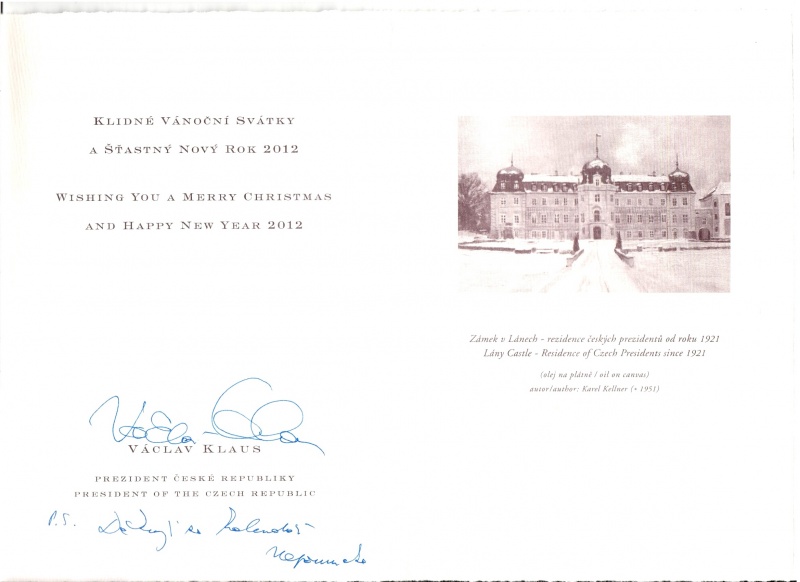 KLIDNÉ VÁNOČNÍ SVÁTKY
A ŠŤASTNÝ NOVÝ ROK 2012
WISHING YOU A MERRY CHRISTMAS
AND HAPPY NEW YEAR 2012
VÁCLAV KLAUS
PREZIDENT ČESKÉ REPUBLIKY
PRESIDENT OF THE CZECH REPUBLIC
P.S. Děkuji za kalendář
Nepomucko
Zámek v Lánech - rezidence českých prezidentů od roku 1921
Lány Castle - Residence of Czech Presidents since 1921
(olej na plátně / oil on canvas)
autor/author: Karel Kellner (* 1951)